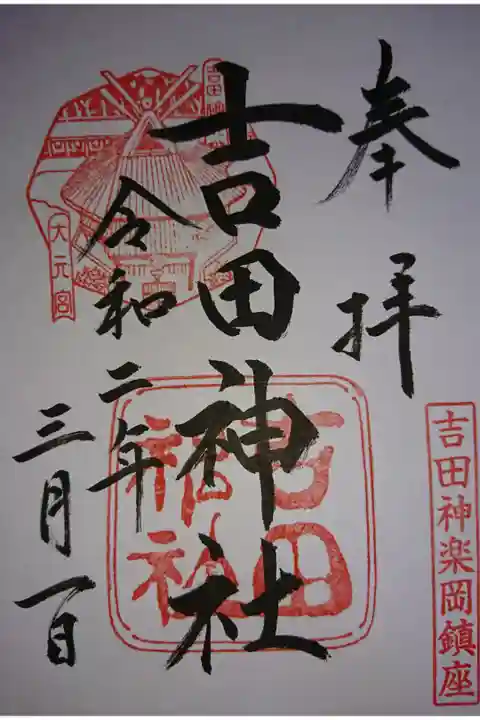 奉拝
吉田神楽岡鎮座
吉田神社
吉田
神社
吉田神
大元宮
令和二年
三月一日